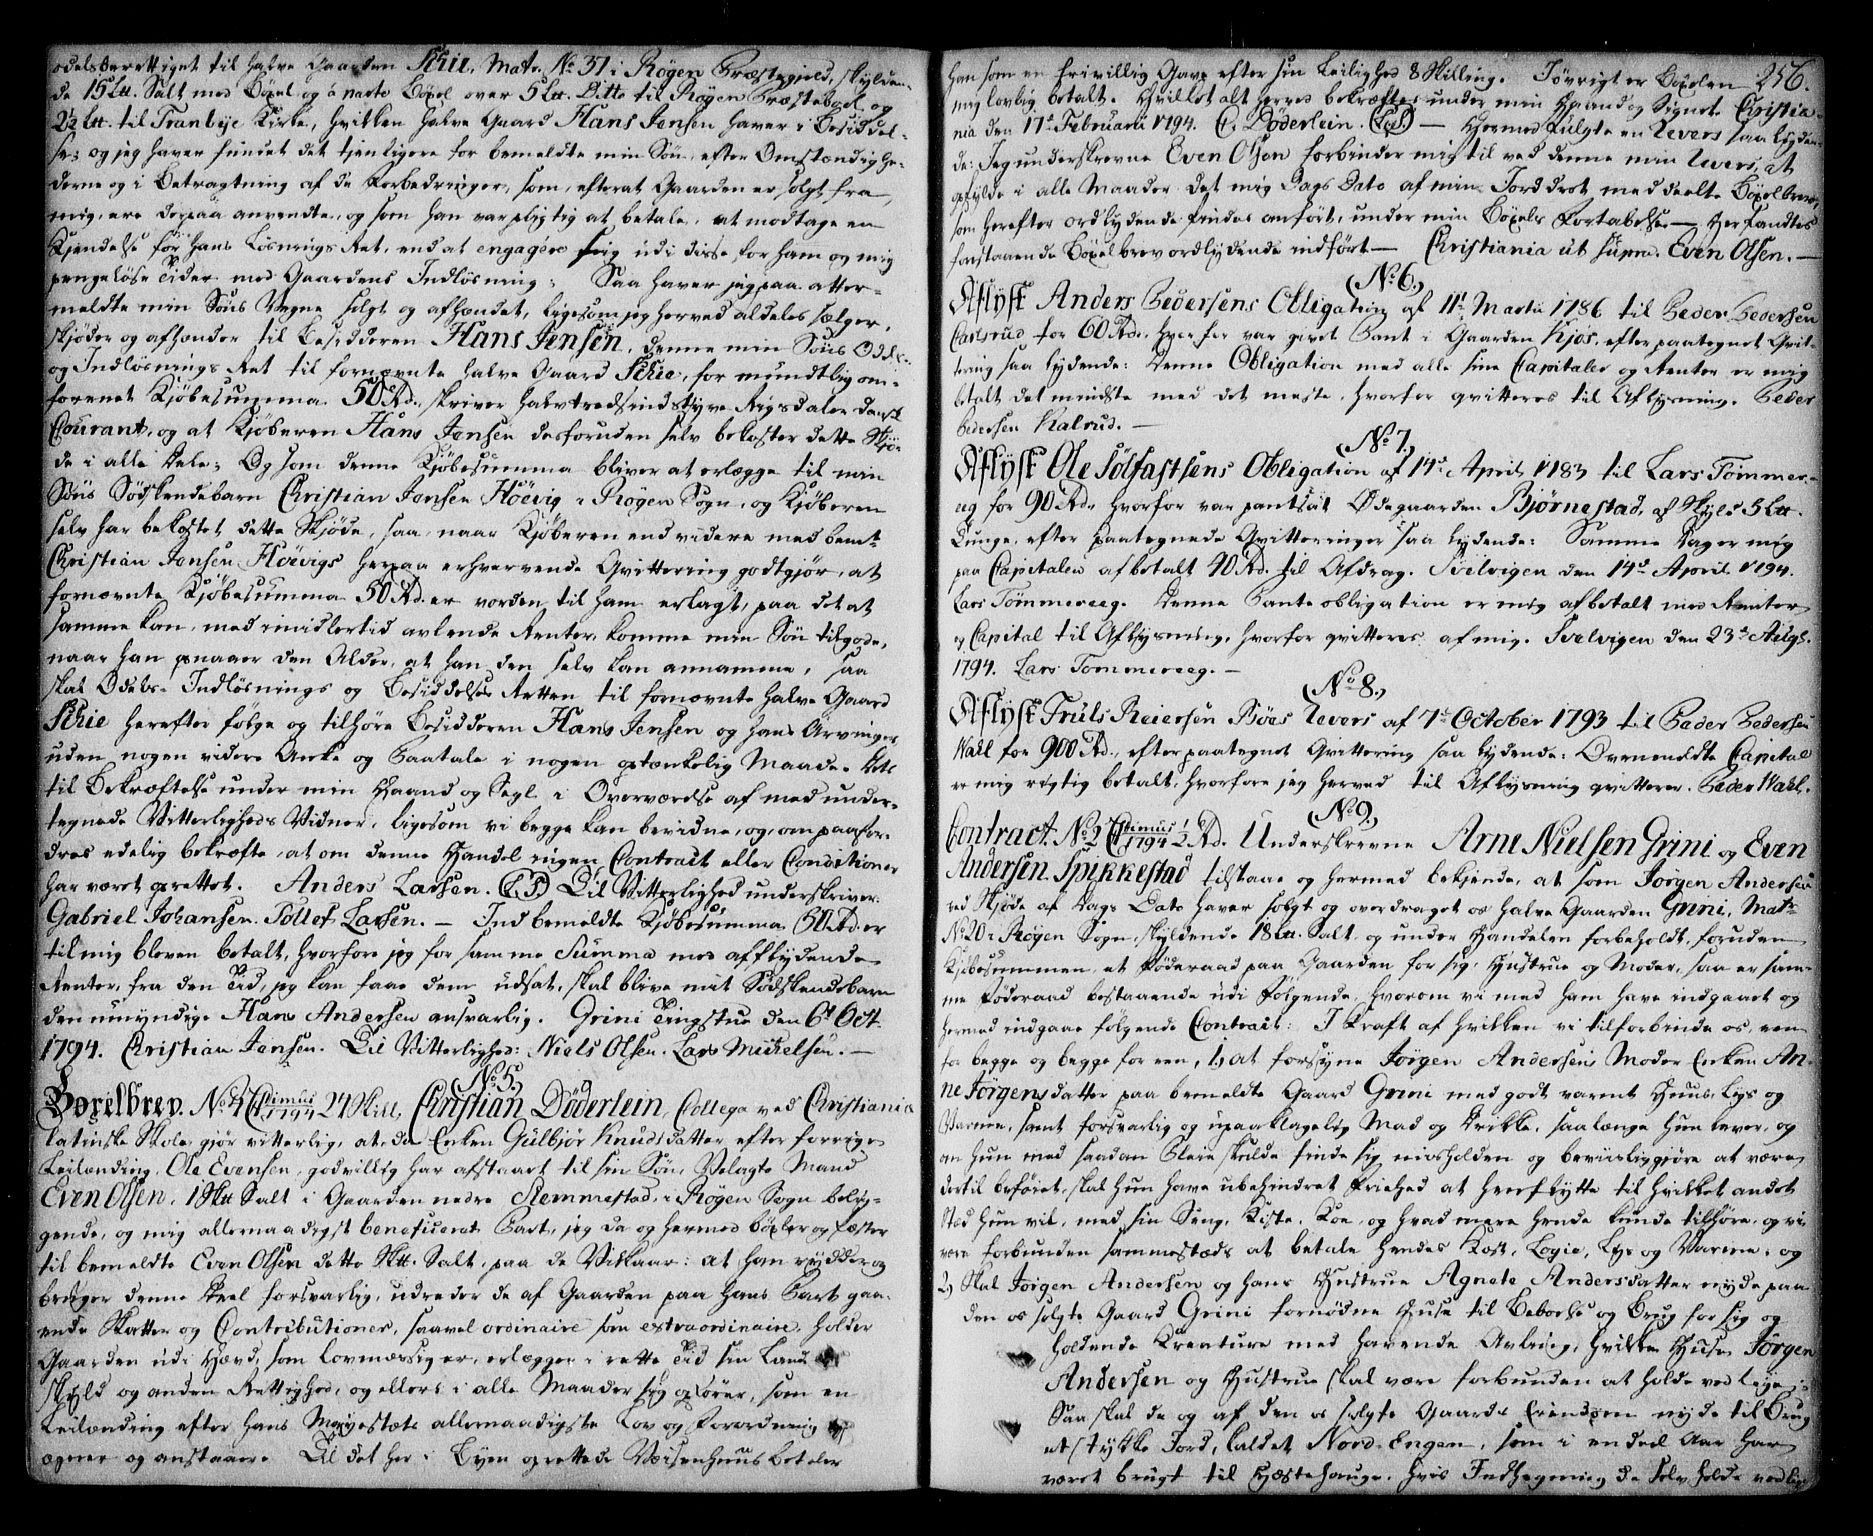 odelsberettiget til halve Gaarden Schie, Matr. No 51 i Røgen Præstegield, skylden-
de 15 Ltt. Salt med Bøxel og á naste Bøxel over 5 Ltt. Ditto til Røgen Præsteboel og
2½ Ltt. til Tranbye Kirke, hvilken halve Gaard Hans Jensen haver i Besiddel-
se; og jeg haver fundet det tjenligere for bemeldte min Søn, efter Omstændighe-
derne og i Betragtning af de Forbedringer, som, efterat Gaarden er solgt fra
mig, ere derpaa anvendte, og som han var pligtig at betale, at modtage en
Kjendelse for hans Løsnings Ret, end at engagére sig udi disse for ham og mig
pengeløse Tider med Gaardens Indløsning; Saa haver jeg paa atter-
meldte min Søns Vegne solgt og afhændet, ligesom jeg herved aldeles sælger,
skjøder og afhænder til Besidderen Hans Jensen, denne min Søns Odels-
og Indløsnings Ret til fornævnte halve Gaard Schie, for mundtlig om-
forenet Kjøbesumma 50 Rd., skriver halvtredsindstyve Rigsdaler dansk
Courant, og at Kjøberen Hans Jensen desforuden selv bekoster dette Skjø-
de i alle Dele; Og som denne Kjøbesumma bliver at erlægge til min
Søns Sødskendebarn Christian Jensen Høevig i Røgen Sogn, og Kjøberen
selv har bekostet dette Skjøde, saa, naar Kjøberen end videre med bemt
Christian Jensen Høevigs herpaa erhvervende Qvittering godtgjør, at
fornævnte Kjøbesumma 50 Rd. er vorden til ham erlagt, paa det at
samme kan, med imidlertid avlende Renter, komme min Søn tilgode,
naar han opnaaer den Alder, at han den selv kan annamme, saa
skal Odels- Indløsnings og Besiddelses Retten til fornævnte halve Gaard
Schie herefter følge og tilhøre Besidderen Hans Jensen og hans Arvinger
uden nogen videre Anke og Paatale i nogen optænkelig Maade. Dets
til Bekræftelse under min Haand og Segl i Overværelse af med under-
tegnede Vitterligheds Vidner, ligesom vi begge kan bevidne, og, om paafor-
dres edelig bekræfte, at om denne Handel ingen Contract eller Conditioner
har været oprettet. Anders Larsen. (L.S.) Til Vitterlighed underskriver:
Gabriel Johansen. Tollef Larsen. — Indbemeldte Kjøbesumma 50 Rd. er
til mig bleven betalt, hvorfore jeg for samme Summa med afflydende
Renter, fra den Tid, jeg kan faae dem udsat, skal blive mit Sødskendebarn
den umyndige Hans Andersen ansvarlig. Grini Tingstue den 6t Octr.
1794. Christian Jensen. Til Vitterlighed: Niels Olsen. Lars Mickelsen. —
(No 5.)
Boxelbrev. No 4 Ct. primus 1794 24 Skill. Christian Döderlein, Collega ved Christiania
latinske Skole, gjør vitterlig, at da Enken Gulbjør Knudsdatter efter forrige
Leilænding, Ole Evensen, godvillig har afstaaet til sin Søn, Velagte Mand
Even Olsen, 1 Sktt Salt i Gaarden nedre Nemmestad, i Røgen Sogn belig-
gende, og mig allernaadigst beneficeret Part, jeg da og hermed bøxler og fæster
til bemeldte Even Olsen dette Sktt. Salt, paa de Vilkaar: at han rydder og
bruger denne Deel forsvarlig, udreder de af Gaarden paa hans Part gaa-
ende Skatter og Contributioner, saavel ordinaire som extraordinaire, holder
Gaarden udi Hævd, som lovmæssig er, erlægger i rette Tid sin Land
skyld og anden Rettighed, og ellers i alle Maader sig opfører, som en
Leilænding efter Hans Mayestæts allernaadigste Lov og Forordning
egner og anstaaer. Til det her i Byen oprettede Væisenhuus betaler
256.
han som en frivillig Gave efter sin Leilighed 8 Skilling. Iøvrigt er Bøxelen
mig lovlig betalt. Hvilket alt herved bekræftes under min Haand og Signet. Christia-
nia den 17de Februarii 1794. C. Döderlein. (L.S.) — Hermed fulgte en Revers saa lyden-
de: Jeg underskrevne Even Olsen forbinder mig til ved denne min Revers, at
opfylde i alle Maader det mig Dags Dato af min Jorddrot meddeelte Bøxelbrev,
som herefter ordlydende findes anført, under min Bøxels Fortabelse — Her fandtes
foranstaaende Bøxelbrev ordlydende indført — Christiania ut supra. Even Olsen. —
(No 6.)
Aflyst Anders Pedersens Obligation af 11t Martii 1786 til Peder Pedersen
Carlsrud for 60 Rd., hvorfor var givet Pant i Gaarden Kjøs, efter paategnet Qvit-
tering saa lydende: Denne Obligation med alle sine Capitaler og Renter er mig
betalt det mindste med det meste, hvorfor qvitteres til Aflysning. Peder
Pedersen Kalrud. —
(No 7.)
Aflyst Ole Solfastsens Obligation af 14de April 1783 til Lars Tømmer-
eeg for 90 Rd., hvorfor var pantsat Ødegaarden Bjørnestad, af Skyld 5 Ltt.
Tunge, efter paategnede Qvitteringer saa lydende: Samme Dag er mig
paa Capitalen afbetalt 40 Rd. til Afdrag. Svelvigen den 14de April 1794.
Lars Tømmereeg. Denne Panteobligation er mig afbetalt med Renter
og Capital til Aflysning, hvorfor qvitteres af mig. Svelvigen den 23de Augs.
1794. Lars Tommereeg. —
(No 8.)
Aflyst Truls Reiersen Bøes Revers af 7de October 1793 til Peder Pedersen
Wall for 900 Rd., efter paategnet Qvittering saa lydende: Ovenmeldte Capital
er mig rigtig betalt, hvorfore jeg herved til Aflysning qvitterer. Peder Wall.
(No 9.)
Contract. No 2 Ct. primus 1794 ½ Rd. Underskrevne Arne Nielsen Grini og Even
Andersen Spikkestad tilstaae og hermed bekjende, at som Jørgen Andersen
ved Skjøde af Dags Dato haver solgt og overdraget os halve Gaarden Grini, Matr.
No 20 i Røgen Sogn, skyldende 18 Ltt. Salt, og under Handelen forbeholdt, foruden
Kjøbesummen, et Føderaad paa Gaarden for sig, Hustrue og Moder, saa er sam-
me Føderaad bestaaende udi Følgende, hvorom vi med ham have indgaaet og
hermed indgaae følgende Contract: I Kraft af hvilken vi tilforbinde os, een
for begge og begge for een, 1) at forsyne Jørgen Andersens Moder Enken An-
ne Jørgensdatter paa bemeldte Gaard Grini med godt varmt Huus, Lys og
Varme, samt forsvarlig og upaaklagelig Mad og Drikke, saalænge hun lever, og
om hun med saadan Pleie skulde finde sig misholden og beviisliggjøre at være
dertil beføiet, skal hun have ubehindret Friehed at henflytte til hvilket andet
Sted hun vil, med sin Seng, Kiste, Koe, og hvad mere hende kunde tilhøre, og vi
være forbunden sammesteds at betale hendes Kost, Logie, Lys og Varme, og
2) Skal Jørgen Andersen og hans Hustrue Agnete Andersdatter nyde paa
den os solgte Gaard Grini fornødne Huse til Beboelse og Brug for sig og
holdende Kreature med havende Avling, hvilke Huse Jørgen
Andersen og Hustrue skal være forbunden at holde ved lige;
Saa skal de og af den os solgte Gaards Eiendom nyde til Brug
et stykke Jord, kaldet Nord-Engen, som i endeel Aar har
været brugt til Hæstehauge, hvis Indhegning de selv holde vedlige